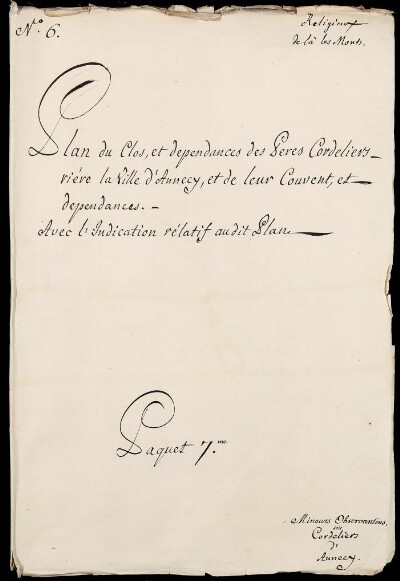 N.o 6.
Religieux
de là les Monts.
Plan du Clos, et dependances des Peres Cordeliers
riére la Ville d'Annecy, et de leur Couvent, et
dependances. -
Avec l'Indication rélatif audit Plan
Paquet 7.me
Mineurs Observantins,
dits
Cordeliers
d'
Annecy.